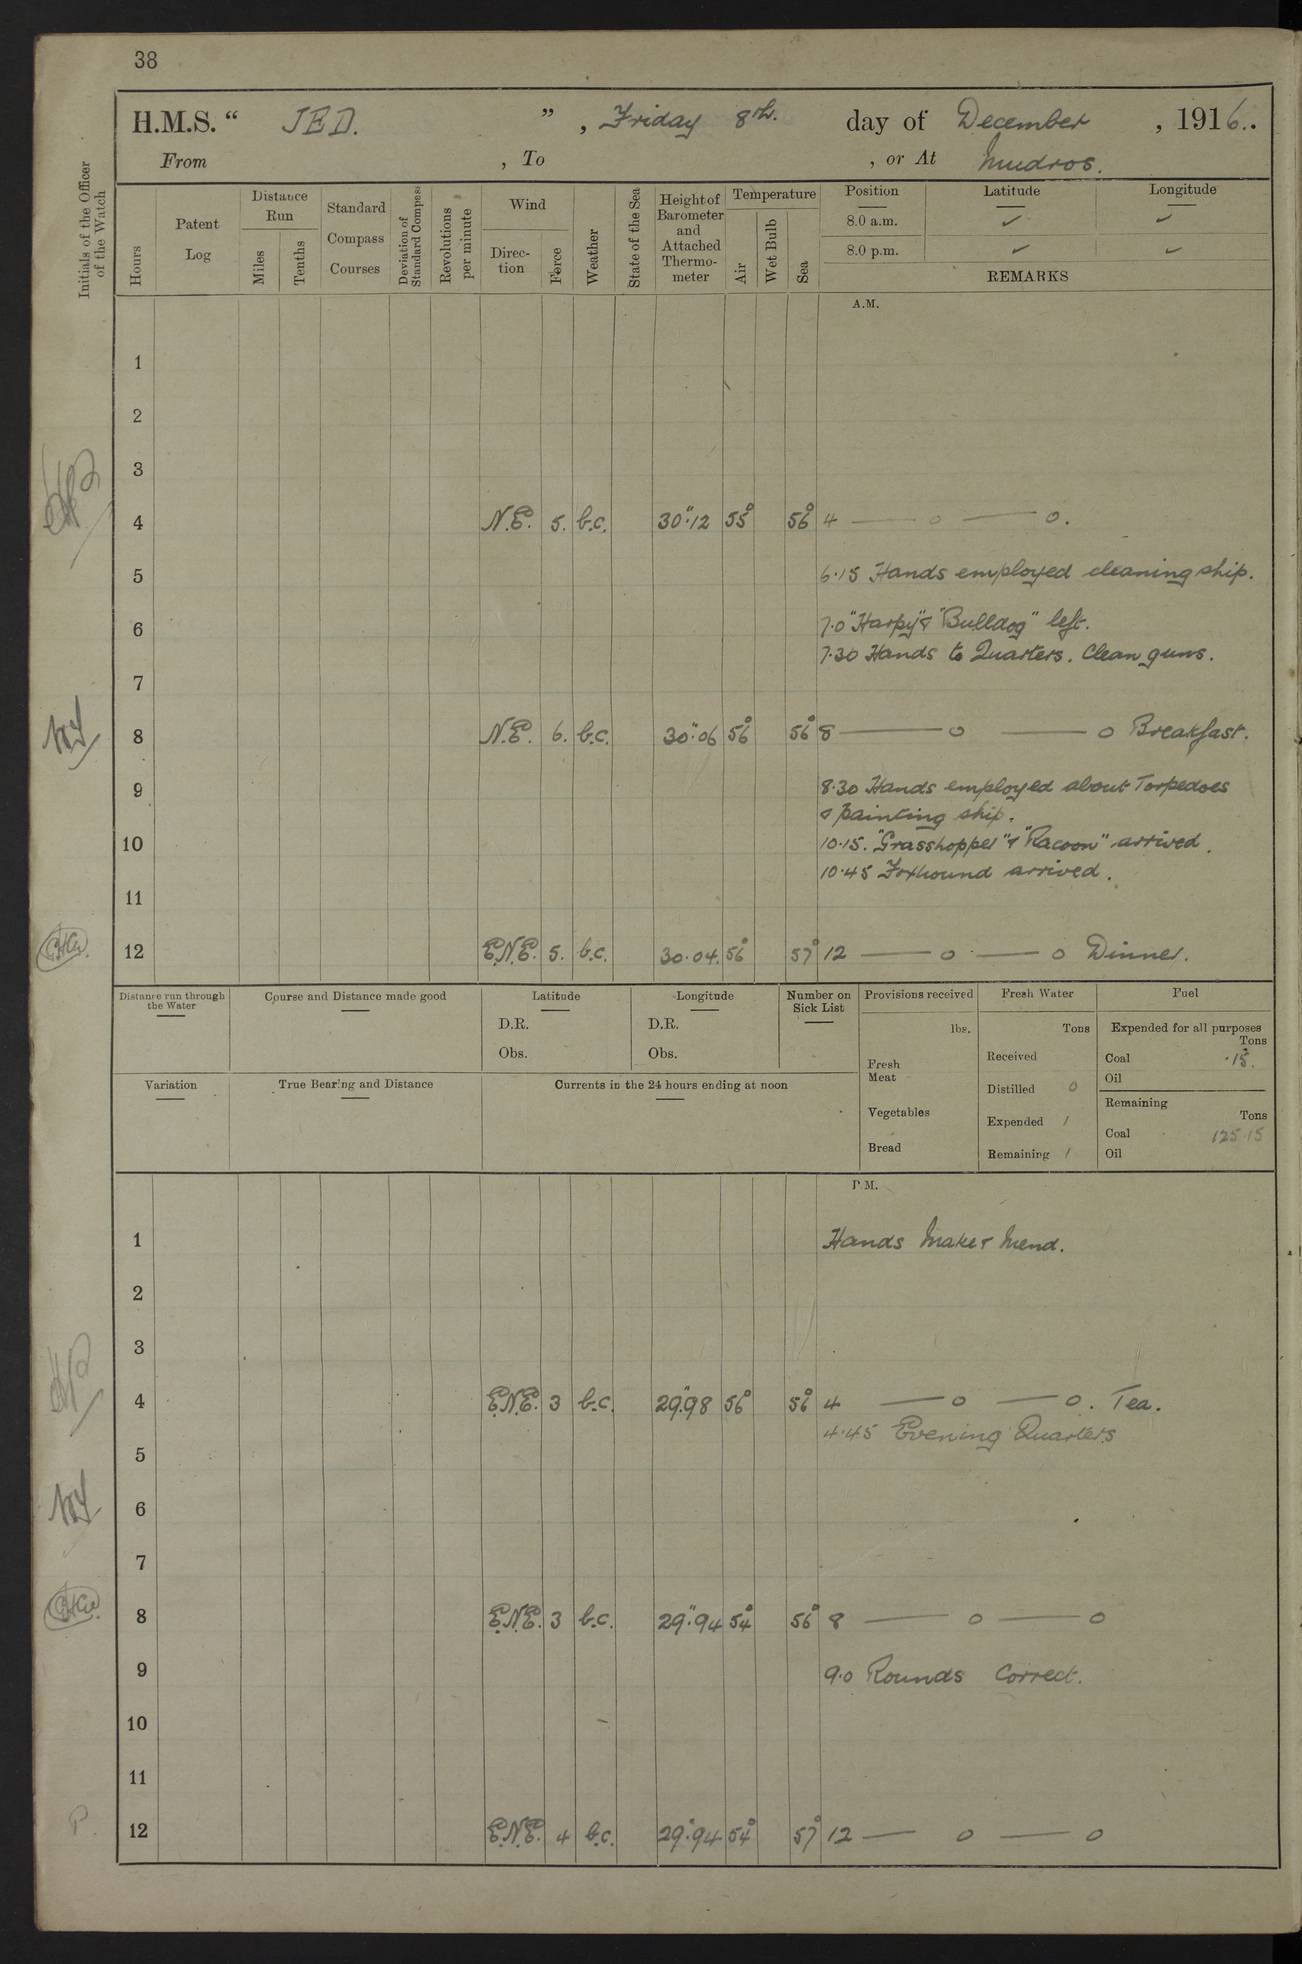 38
H.M.S. " JED. " , Friday 8th. day of December , 1916..
From , To , or At Mudros.
Initials of the Officer of the Watch
Hours
Patent Log
Distance Run
Miles
Tenths
Standard Compass Courses
Deviation of Standard Compass
Revolutions per minute
Wind
Direction
Force
Weather
State of the Sea
Height of Barometer and Attached Thermometer
Temperature
Air
Wet Bulb
Sea
Position Latitude Longitude
8.0 a.m. ✓ ✓
8.0 p.m. ✓ ✓
REMARKS
A.M.
1
2
3
4 N.E. 5. b.c. 30".12 55° 56° 4 — o — o.
5 6.15 Hands employed cleaning ship.
6 7.0 "Harpy" & "Bulldog" left.
7.30 Hands to Quarters. Clean guns.
7
8 N.E. 6. b.c. 30".06 56° 56° 8 — o — o Breakfast.
9 8.30 Hands employed about Torpedoes
& painting ship.
10 10.15. "Grasshopper" & "Racoon" arrived.
10.45 Foxhound arrived.
11
12 E.N.E. 5. b.c. 30.04. 56° 57° 12 — o — o Dinner.
Distance run through the Water
Course and Distance made good
Latitude
D.R.
Obs.
Longitude
D.R.
Obs.
Number on Sick List
Provisions received
lbs.
Fresh Meat
Vegetables
Bread
Fresh Water
Tons
Received
Distilled 0
Expended 1
Remaining 1
Fuel
Expended for all purposes
Tons
Coal .15.
Oil
Remaining
Tons
Coal 125.15
Oil
Variation
True Bearing and Distance
Currents in the 24 hours ending at noon
P.M.
1 Hands Make & Mend.
2
3
4 E.N.E. 3 b.c. 29".98 56° 56° 4 — o — o. Tea.
4.45 Evening Quarters
5
6
7
8 E.N.E. 3 b.c. 29".94 54° 56° 8 — o — o
9 9.0 Rounds Correct.
10
11
12 E.N.E. 4 b.c. 29".94 54° 57° 12 — o — o